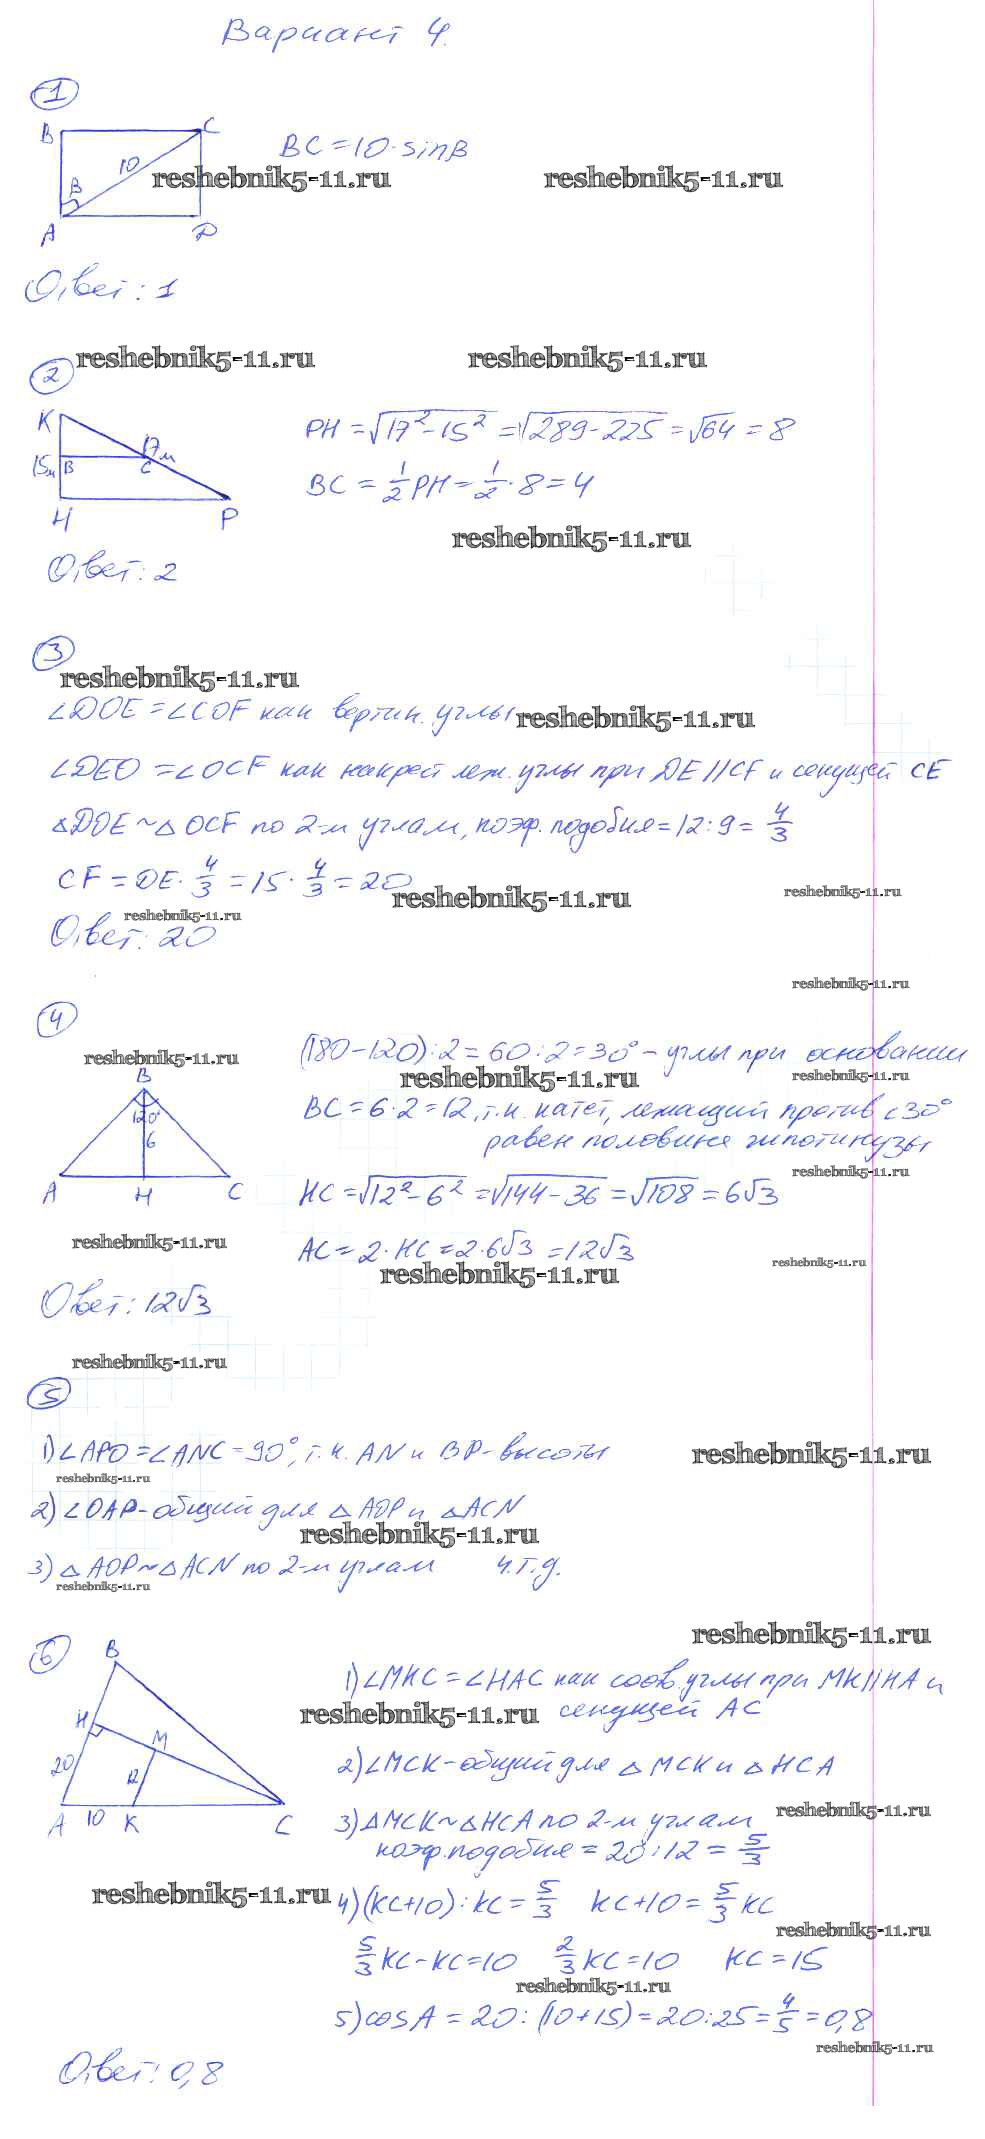 Вариант 4.
1
B C
BC = 10 · sin β
10
β
reshebnik5-11.ru reshebnik5-11.ru
A D
Ответ: 1
reshebnik5-11.ru reshebnik5-11.ru
2
K
PH = √17² - 15² = √289 - 225 = √64 = 8
17м
15м B C
BC = 1/2 PH = 1/2 · 8 = 4
H P
reshebnik5-11.ru
Ответ: 2
3
reshebnik5-11.ru
∠DOE = ∠COF как вертик. углы
reshebnik5-11.ru
∠DEO = ∠OCF как накрест леж. углы при DE || CF и секущей CE
△DOE ~ △OCF по 2-м углам, коэф. подобия = 12 : 9 = 4/3
CF = DE · 4/3 = 15 · 4/3 = 20
reshebnik5-11.ru reshebnik5-11.ru
reshebnik5-11.ru
Ответ: 20
reshebnik5-11.ru
4
(180 - 120) : 2 = 60 : 2 = 30° - углы при основании
reshebnik5-11.ru
reshebnik5-11.ru reshebnik5-11.ru
B
120°
6
BC = 6 · 2 = 12, т.к. катет, лежащий против ∠30°
равен половине гипотинузы
reshebnik5-11.ru
A H C
HC = √12² - 6² = √144 - 36 = √108 = 6√3
reshebnik5-11.ru
AC = 2 · HC = 2 · 6√3 = 12√3
reshebnik5-11.ru reshebnik5-11.ru
Ответ: 12√3
reshebnik5-11.ru
5
1) ∠APO = ∠ANC = 90°, т.к. AN и BP - высоты
reshebnik5-11.ru
reshebnik5-11.ru
2) ∠OAP - общий для △AOP и △ACN
reshebnik5-11.ru
3) △AOP ~ △ACN по 2-м углам ч.т.д.
reshebnik5-11.ru
reshebnik5-11.ru
6
B
H
M
20
12
A 10 K C
1) ∠MKC = ∠HAC как соов. углы при MK || HA и
секущей AC
reshebnik5-11.ru
2) ∠MCK - общий для △MCK и △HCA
reshebnik5-11.ru
3) △MCK ~ △HCA по 2-м углам
коэф. подобия = 20 : 12 = 5/3
reshebnik5-11.ru
4) (KC + 10) : KC = 5/3 KC + 10 = 5/3 KC
reshebnik5-11.ru
5/3 KC - KC = 10 2/3 KC = 10 KC = 15
reshebnik5-11.ru
5) cos A = 20 : (10 + 15) = 20 : 25 = 4/5 = 0,8
reshebnik5-11.ru
Ответ: 0,8